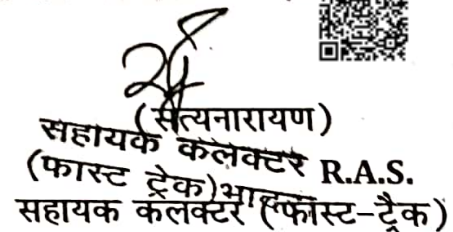 (सत्यनारायण)
सहायक कलक्टर R.A.S.
(फास्ट ट्रेक)
सहायक कलक्टर (फास्ट-ट्रैक)